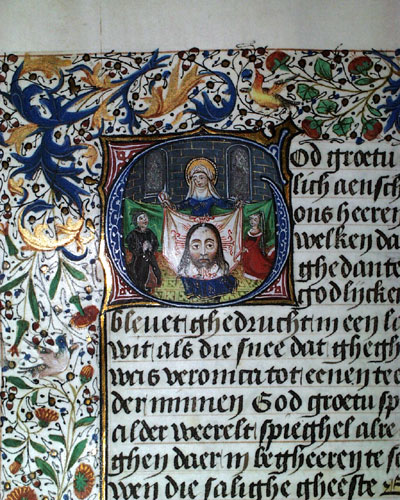 God groetu
lich aensch
ons heeren
welken da
ghedante
godlijcke
bleuet ghedrucht in een la
wit als die snee dat ghegh
was veronica tot eenen tee
der minnen God groetu sp
alder weerelt spieghel alre
ghen daer in begheeren te s
wen die salighe gheeste